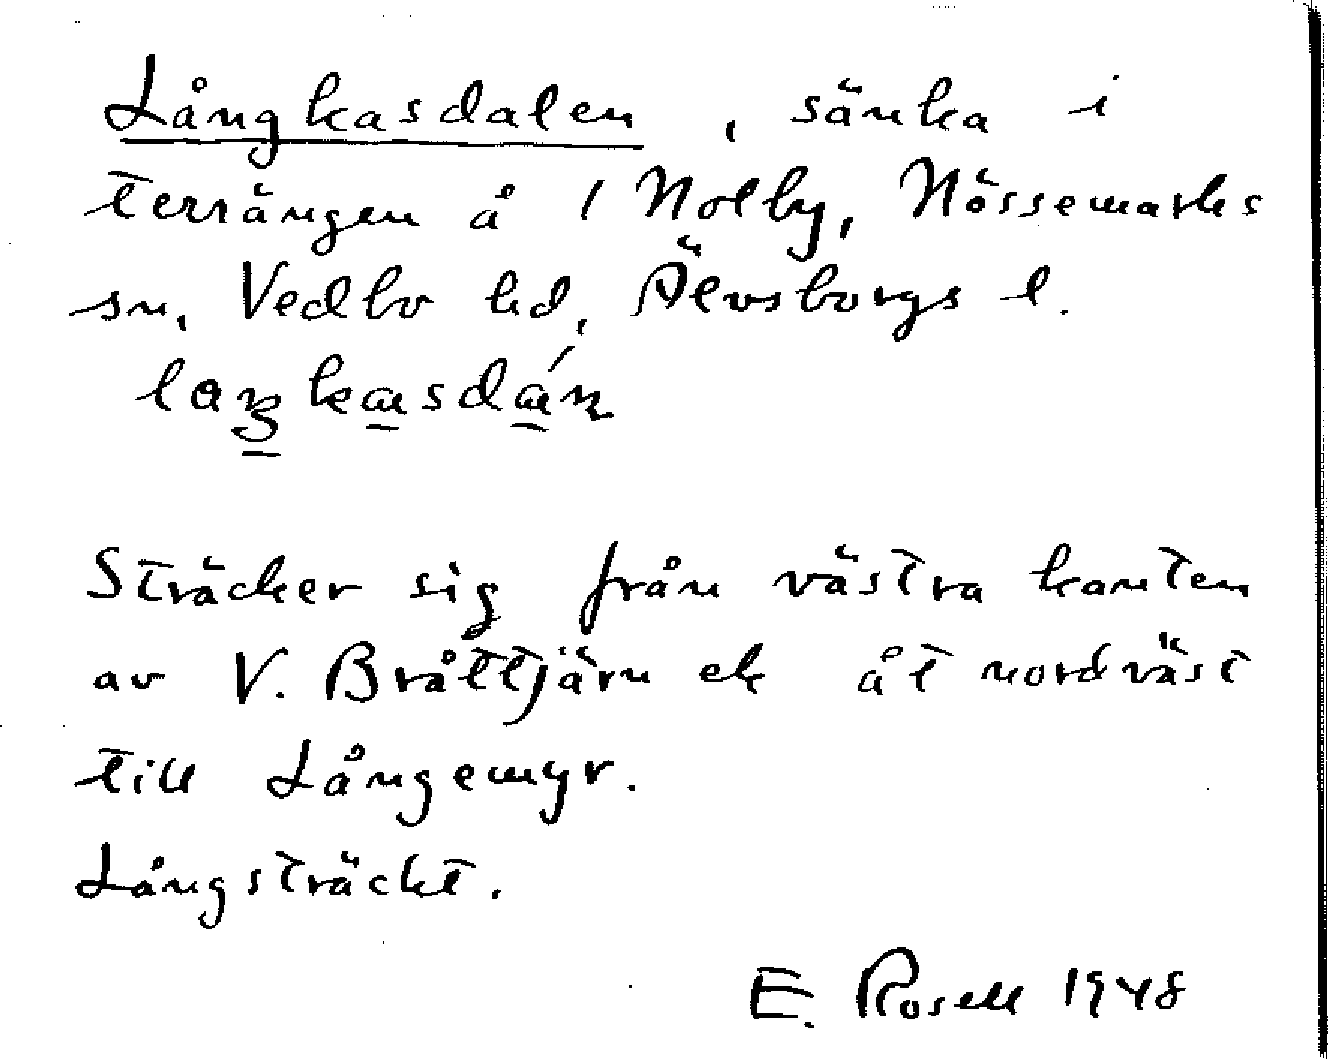 Långkasdalen, sänka i
terrängen å 1 Nolby, Nössemarks
sn, Vedbo hd, Älvsborgs l.
Sträcker sig från västra kanten
av V. Bråttjärn ek åt nordväst
till Långemyr.
Långsträckt.
E. Rosell 1948